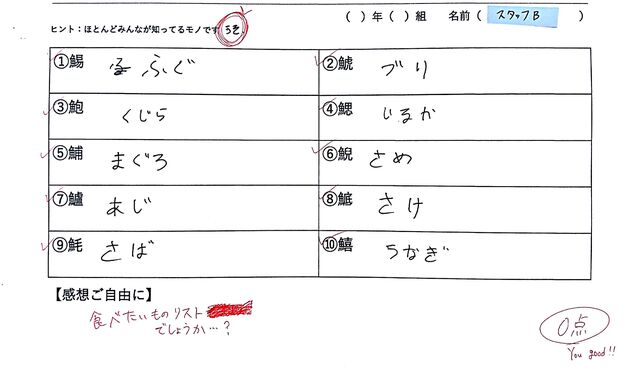 ( )年( )組 名前( スタッフB )
ヒント:ほとんどみんなが知ってるモノです うそ
①鯣 ふぐ ②鯱 ぶり
③鮑 くじら ④鰓 いるか
⑤鯆 まぐろ ⑥鯢 さめ
⑦鱸 あじ ⑧ さけ
⑨ さば ⑩鱚 うなぎ
【感想ご自由に】
食べたいものリスト
でしょうか…?
0点
You good!!